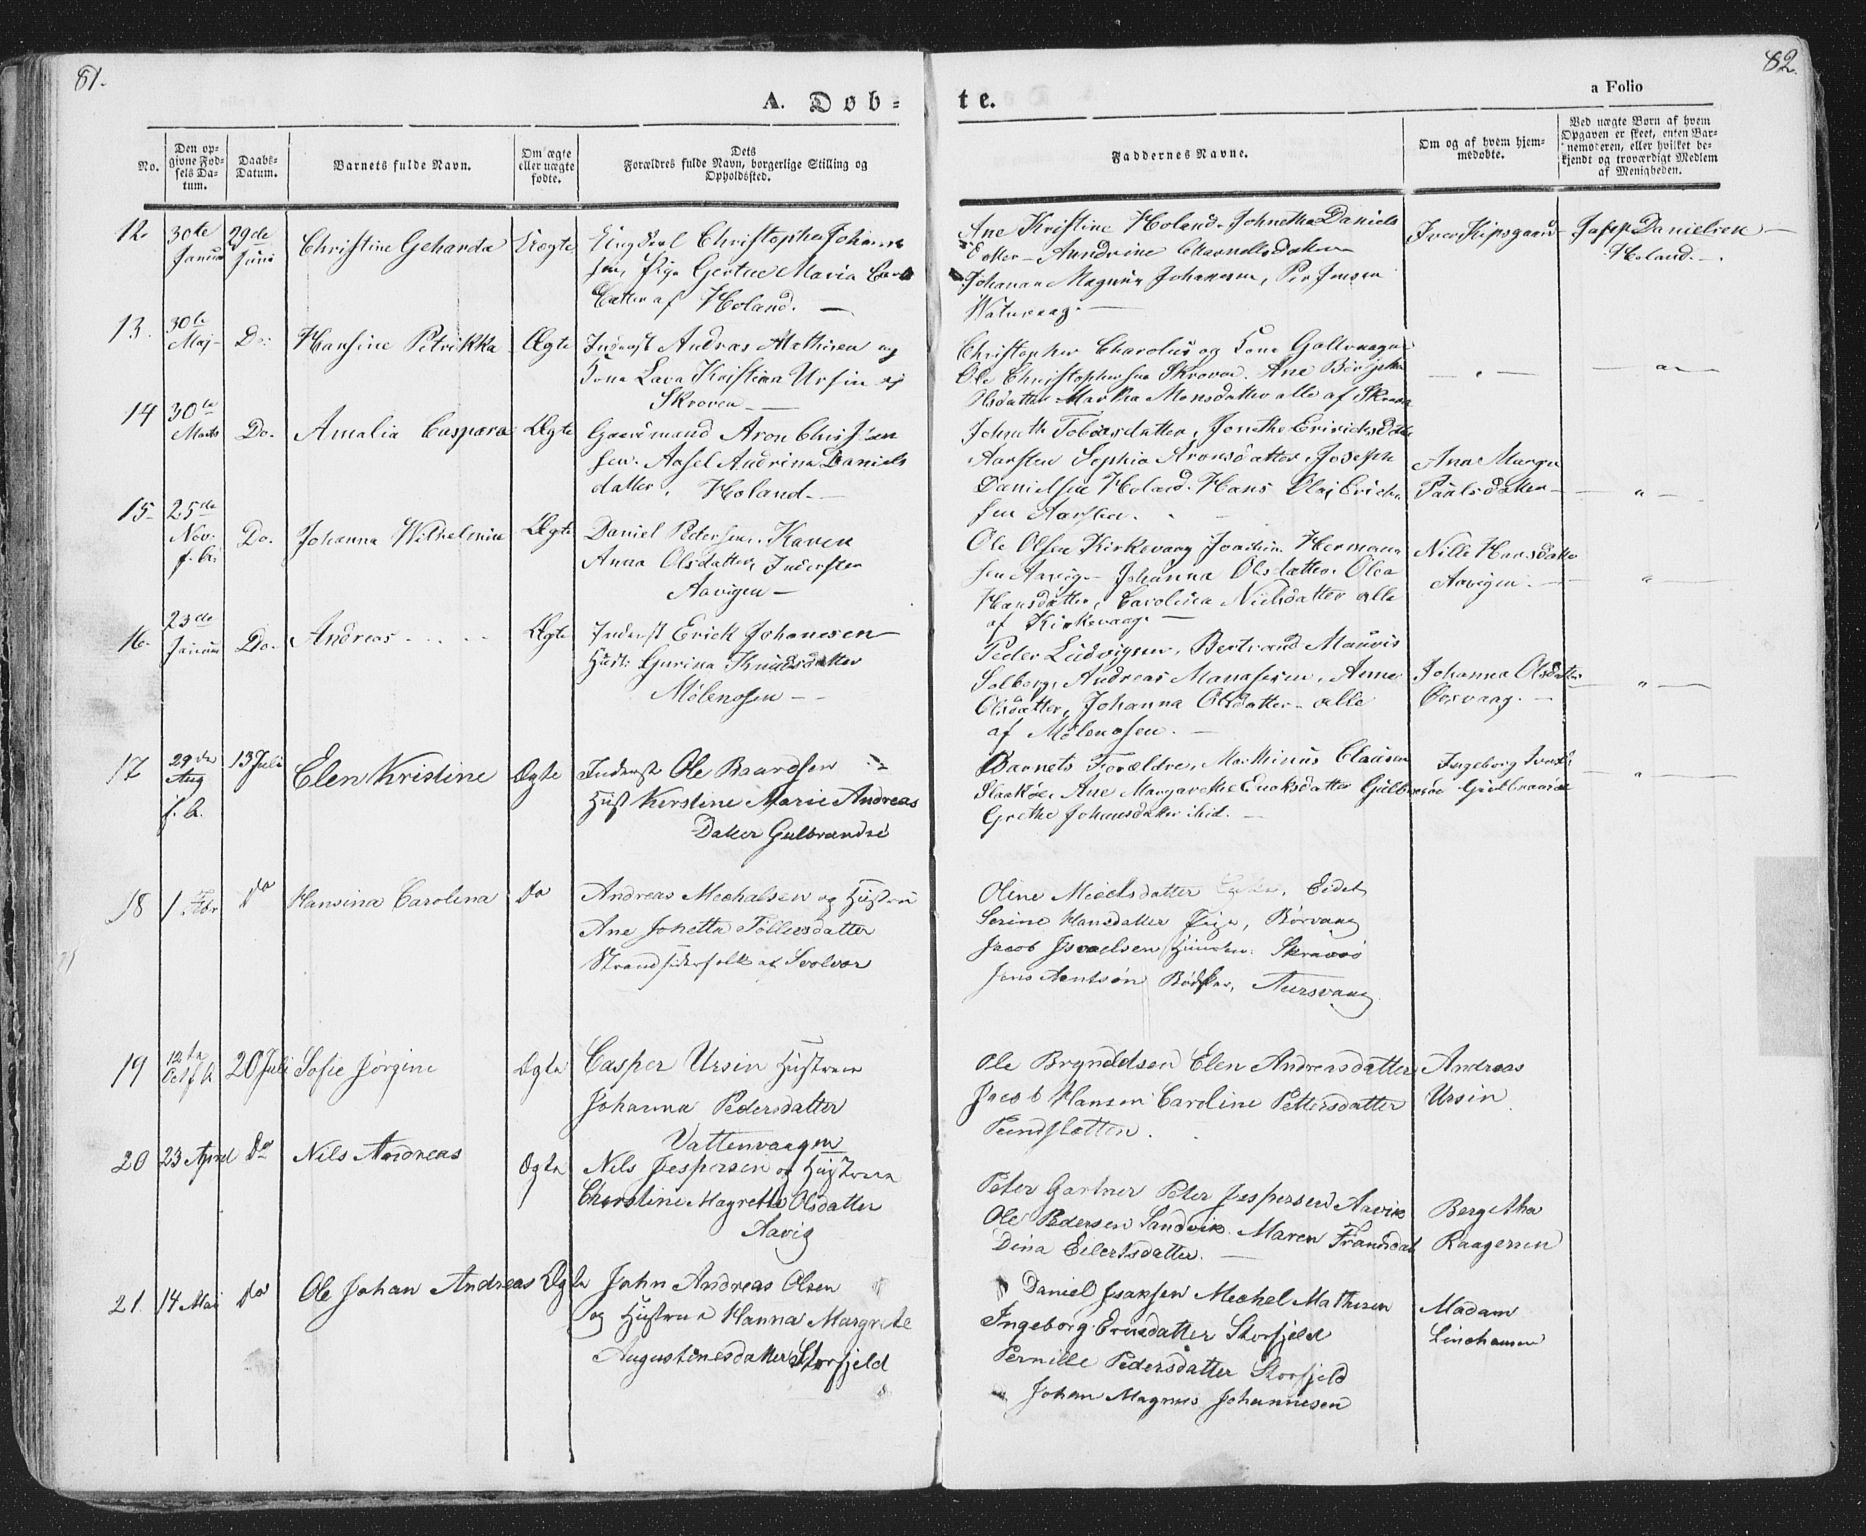 81.
82.
A. Døb=
te.
a Folio
No.
Den op-
givne Fød-
sels Da-
tum.
Daabs-
Datum.
Barnets fulde Navn.
Om ægte
eller uægte
fødte.
Dets
Forældres fulde Navn, borgerlige Stilling og
Opholdssted.
Faddernes Navne.
Om og af hvem hjem-
medøbte.
Ved uægte Børn af hvem
Opgaven er skeet, enten Bar-
nemoderen, eller hvilket be-
kjendt og troværdigt Medlem
af Menigheden.
12.
30te
29de
Juni
Christine Geharda
Uægte
Ungkarl Christopher Johanne
sen, Pige Gertue Maria
Datter af Holand. —
Ane Kristine Holand. Johnetha Daniels
Johanan Magnus Johansen, Per Jensen
Watuvaag. —
Jvar Kipsgaard
Danielsen —
Holand. —
13.
30te
Maj
Do.
Hansine Petrikka
Ægte
Inderst Andras Mathisen og
Kristina Ursin af
Skroven —
Christopher Charolus og
Ole Christophersen Skrova. Ane
Monsdatter alle af Skrova
14
30te
Marts
Do.
Amalia Caspara
Ægte
Gaardmand Aron Christian
sen. Andrina Daniels
datter, Holand. —
Tobiasdatter,
Aarsten Sophia Aronsdatter, Joseph
Danielsen Holand. Hans Olaj Erick
sen Aarsten.
Ana Marga
Paalsdatter
15
25de
Nov.
f. A.
Do.
Johanna Wilhelmine
Ægte
Daniel Pedersen, Karen
Anna Olsdatter, Indersten
Aavigen —
Ole Olsen Kirkevaag Joachim Herman
sen Aavig — Johanna Olsdatter, Olea
Hansdatter, Carolina Nielsdatter alle
af Kirkevaag —
Nille Hansdatter
Aavigen. —
16.
23de
Do.
Andreas
Ægte
Inderst Erick Johanesen
Hust: Gurina Knudsdatter
Mølenosen —
Peder Ludvigsen, Bertrand Mauris
Solberg, Andreas Manassesen, Anne
Olsdatter, Johanna Olsdatter — alle
af Mølenosen. —
Johanna Olsdatter
17
29de
Aug
f. A.
13 Juli
Elen Kristine
Ægte
Inderst Ole Baardsen
Hust Kirstine Marie Andreas
Datter Gulbrandsø
Barnets Forældre, Marthinus Clausen
Ane Margarethe Enoksdatter
Grethe Johansdatter ibid. —
Ingeborg
18
1 Febr
Do
Hansina Carolena
Do
Andreas Mechalsen og Hustru
Ane Johetta Tollersdatter
Strandsiderfolk af Svolvær
Oline Mikelsdatter Eidet
Serine Hansdatter Pige, Børvaag
Jacob Israelsen Skravoo
Jens Aentsøn Bødker, Aursvaag
19
12te
Oct f A
20 Juli
Sofie Jørgine
Ægte
Casper Ursin Hustruen
Johanna Pedersdatter
Vattenvaagen
Ole Brynildsen Elen Andreasdatter
Jacob Hansen Caroline Pettersdatter
Pundsletten.
Andreas
Ursin
20
23 April
Do
Nils Andreas
Ægte
Nils Jespersen og Hustruen
Cherstine Magretha Olsdatter
Aavig
Peter Gartner Peter Jespersen Aavik
Ole Pedersen Sandvik. Maren Fransdat
Dina Eilertsdatter. —
Bergetha
Raagersen
21.
14 Mai
Do
Ole Johan Andreas
Ægte
John Andreas Olsen
og Hustruen Hanna Margrete
Augustinesdatter Storfjeld
Daniel Isaksen Mechel Mathisen
Ingeborg Ernsdatter Storfjeld
Pernille Pedersdatter Storfjeld
Johan Magnus Johannesen
Madam
Lindhausen